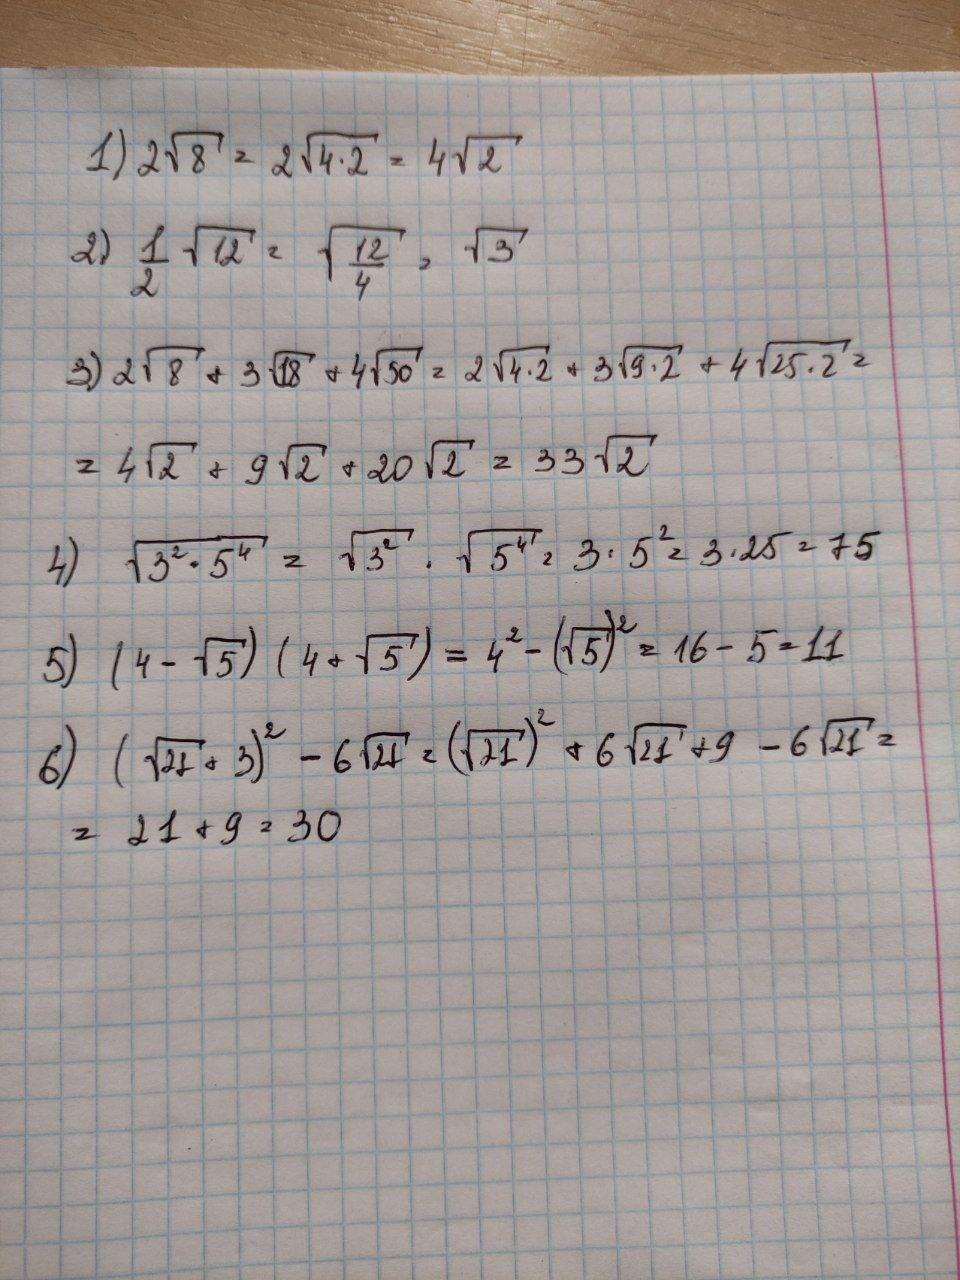 1) 2√8 = 2√4·2 = 4√2
2) 1/2 √12 = √12/4 = √3
3) 2√8 + 3√18 + 4√50 = 2√4·2 + 3√9·2 + 4√25·2 =
= 4√2 + 9√2 + 20√2 = 33√2
4) √3²·5⁴ = √3² · √5⁴ = 3·5² = 3·25 = 75
5) (4-√5)(4+√5) = 4² - (√5)² = 16 - 5 = 11
6) (√21 + 3)² - 6√21 = (√21)² + 6√21 + 9 - 6√21 =
= 21 + 9 = 30